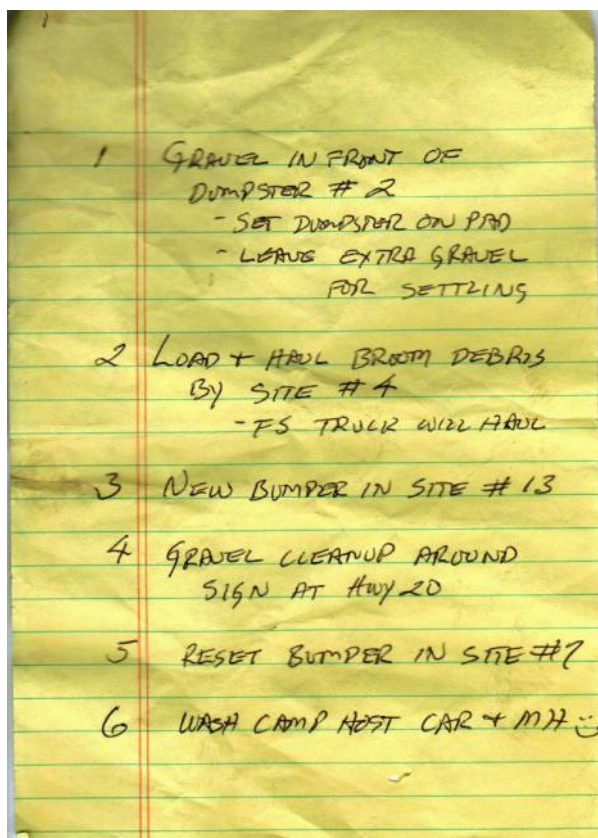 1 GRAVEL IN FRONT OF
DUMPSTER # 2
- SET DUMPSTER ON PAD
- LEAVE EXTRA GRAVEL
FOR SETTLING
2 LOAD + HAUL BROOM DEBRIS
BY SITE # 4
- FS TRUCK WILL HAUL
3 NEW BUMPER IN SITE # 13
4 GRAVEL CLEANUP AROUND
SIGN AT HWY 20
5 RESET BUMPER IN SITE #7
6 WASH CAMP HOST CAR + MH